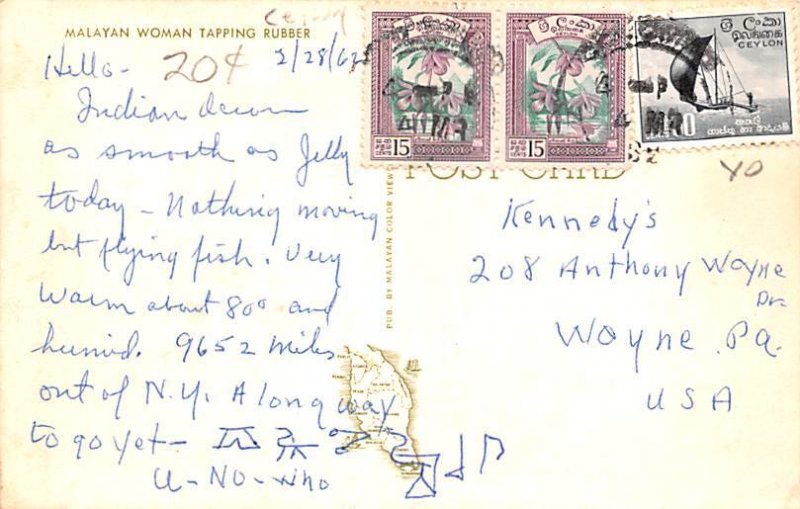 Ceylon
MALAYAN WOMAN TAPPING RUBBER
20¢ 2/28/62
Hello-
Indian
as smooth as Jelly
today - Nothing moving
but flying fish. Very
warm about 80° and
humid. 9652 miles
out of N.Y. A long way
to go yet-
U-NO-Who
ශ්‍රී ලංකා
இலங்கை
15
ශ්‍රී ලංකා
இலங்கை
15
ශ්‍රී ලංකා
இலங்கை
CEYLON
POST CARD
PUB. BY MALAYAN COLOR VIEW
Kennedy's
208 Anthony Wayne
Dr.
Wayne. Pa.
USA